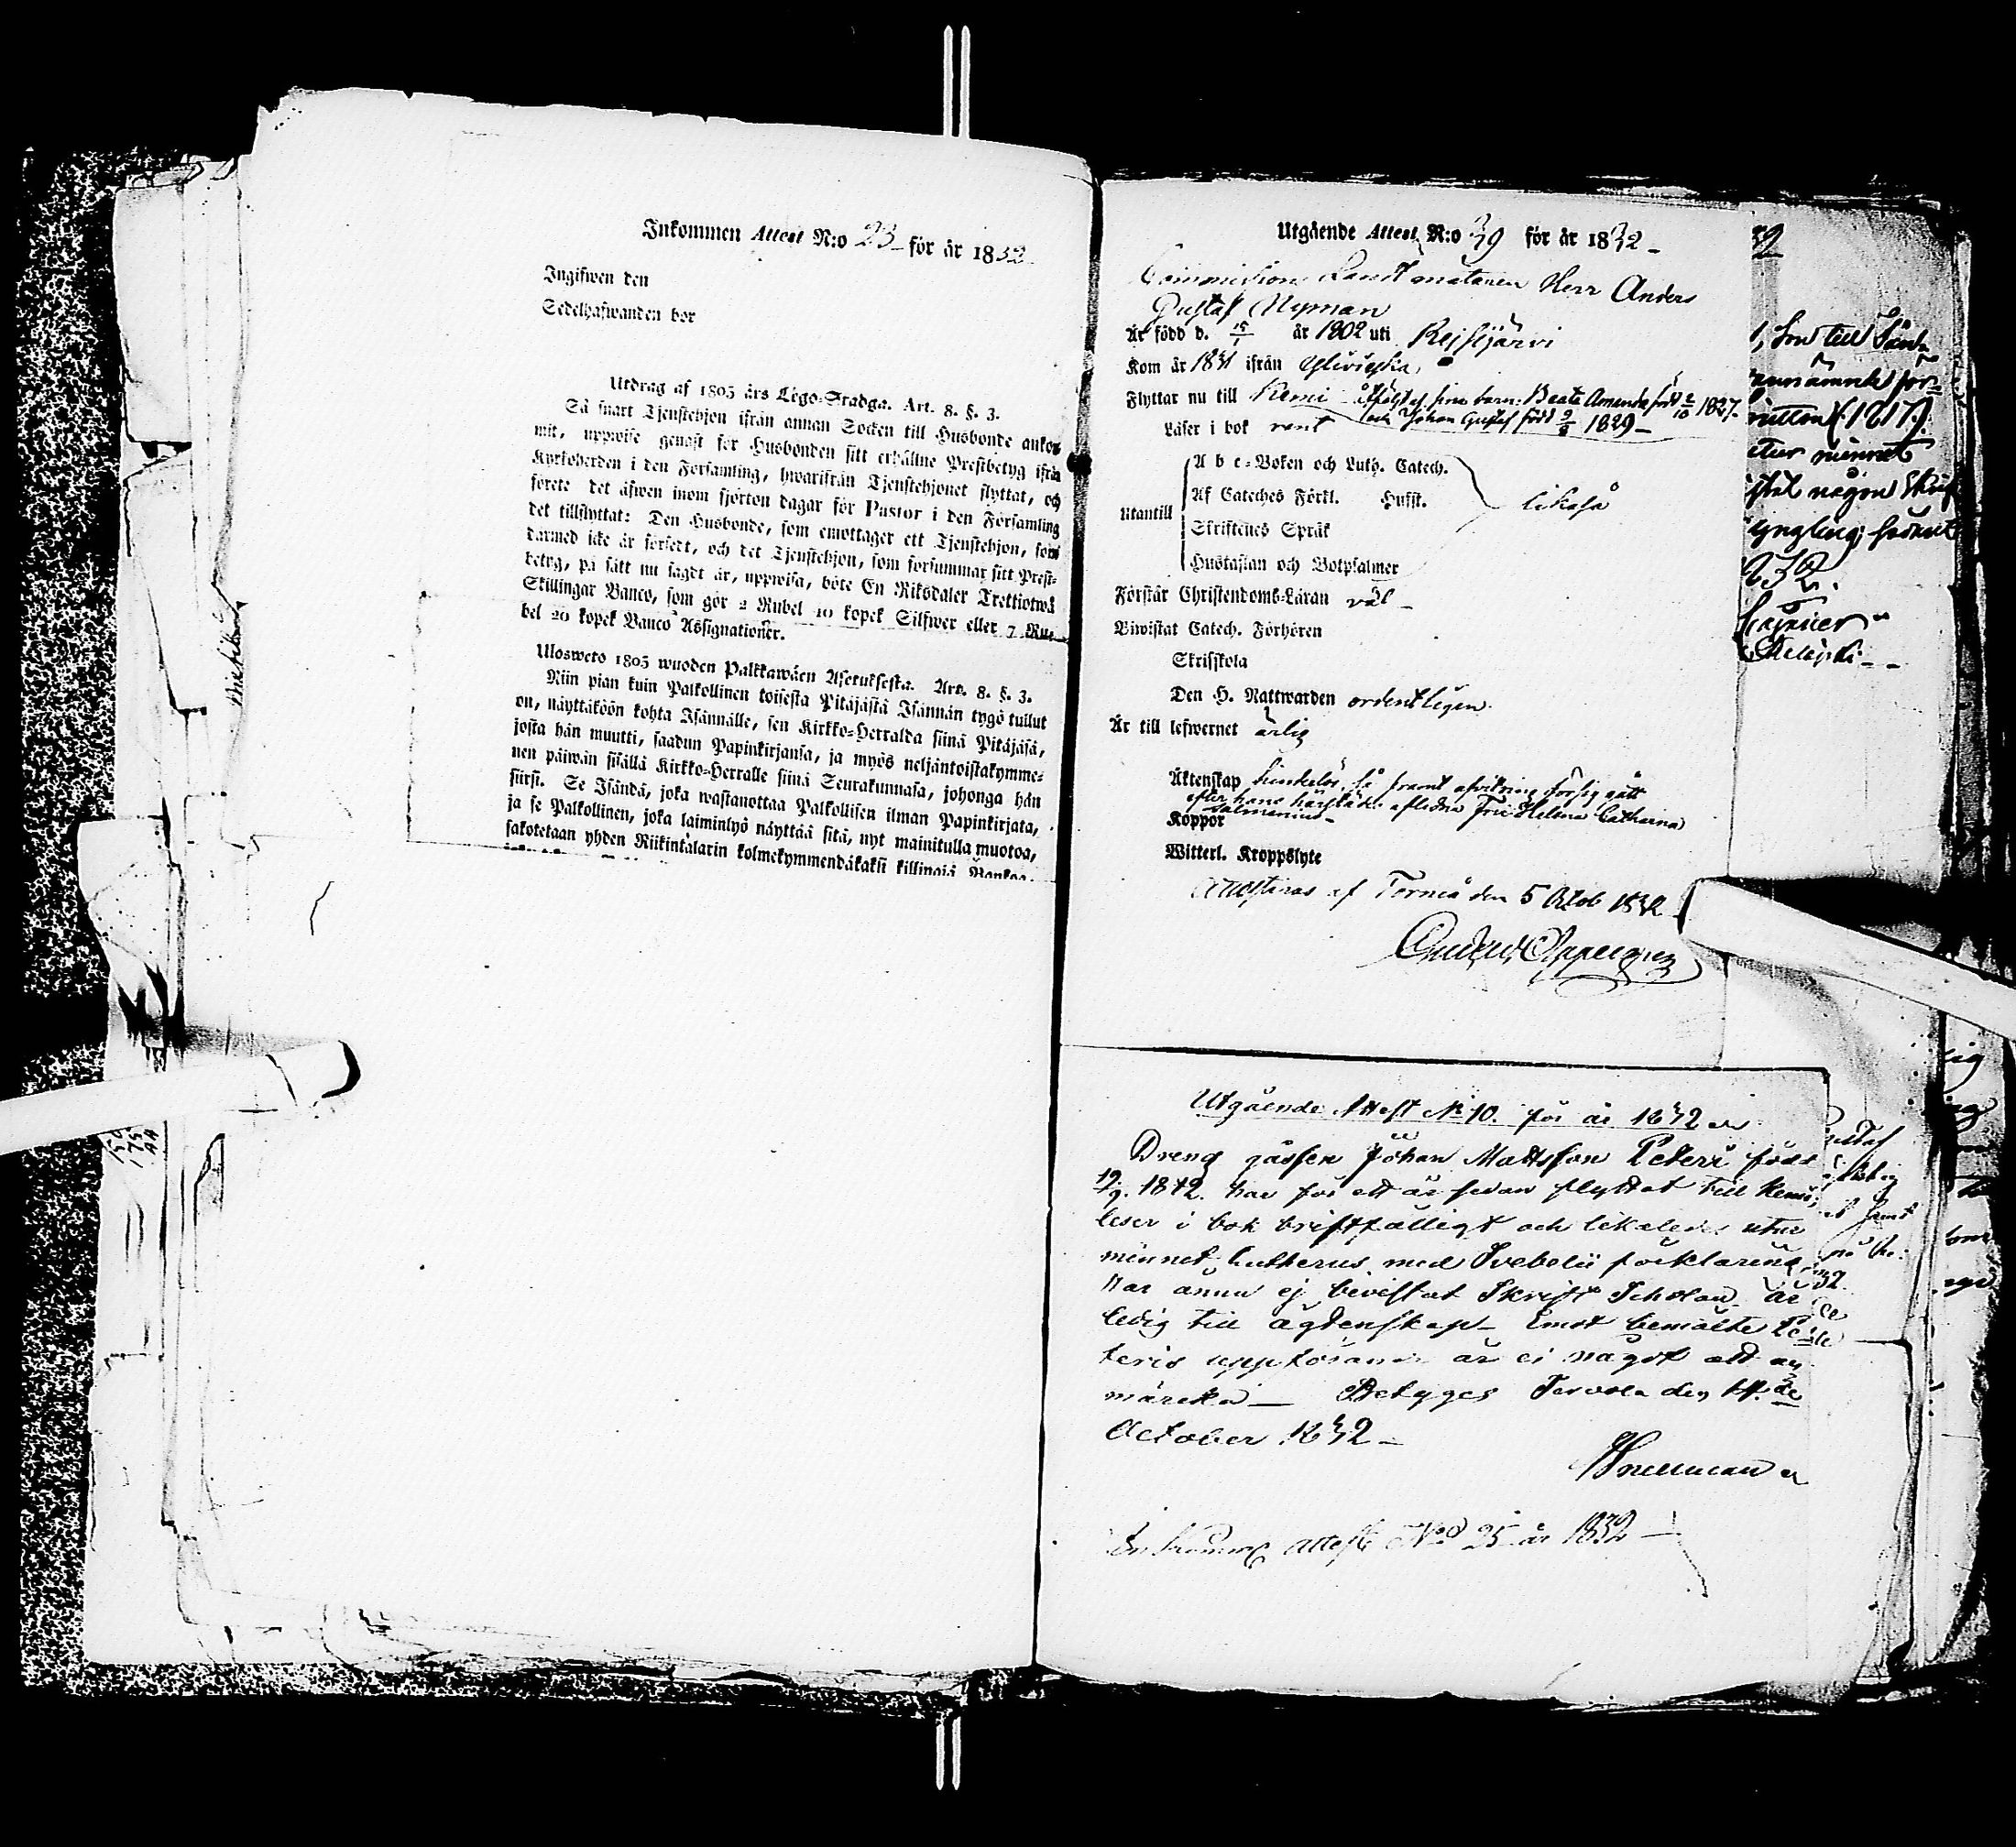 Inkommen Attest N:o 23 för år 1832
Ingifwen den
Sedelhafwanden bor
Utdrag af 1805 års Lego-Stadga. Art. 8. §. 3.
Så snart Tjenstehjon ifrån annan Socken till Husbonde ankom-
mit, uppwise genast för Husbonden sitt erhållne Prestbetyg ifrån
Kyrkoherden i den Församling, hwarifrån Tjenstehjonet flyttat, och
förete det äfwen inom fjorton dagar för Pastor i den Församling
det tillflyttat: Den Husbonde, som emottager ett Tjenstehjon, som
därmed icke är försedt, och det Tjenstehjon, som försummar sitt Prest-
betyg, på sätt nu sagdt är, uppwisa, böte En Riksdaler Trettiotwå
Skillingar Banco, som gör 2 Rubel 10 kopek Silfwer eller 7 Ru-
bel 20 kopek Banco Assignationer.
Ulosweto 1805 wuoden Palkkawäen Asetuksesta. Art. 8. §. 3.
Niin pian kuin Palkollinen toisesta Pitäjästä Isännän tygö tullut
on, näyttäköön kohta Isännälle, sen Kirkko-Herralda siinä Pitäjäsä,
josta hän muutti, saadun Papinkirjansa, ja myös neljäntoistakymme-
nen päiwän sisällä Kirkko-Herralle siinä Seurakunnasa, johonga hän
siirsi. Se Isändä, joka wastanottaa Palkollisen ilman Papinkirjata,
ja se Palkollinen, joka laiminlyö näyttää sitä, nyt mainitulla muotoa,
sakotetaan yhden Riikintalarin kolmekymmendäkaksi killingiä Bankoa,
Utgående Attest N:o 39 för år 1832
Commission Landtmätaren Herr Anders
Gustaf Nyman
Är född d. 15/1 år 1802 uti Rejsjärvi
Kom år 1831 ifrån Ylivieska
Flyttar nu till Kemi åtföljd af sina barn: Beata Amanda född 2/10 1827
och Johan Gustaf född 9/8 1829
Läser i bok rent
Utantill
A b c-Boken och Luth. Catech.
Af Cateches Förkl. Hufst.
Skriftenes Språk
Hustaflan och Botpsalmer
likaså
Förstår Christendoms-Läran väl
Biwistat Catech. Förhören
Skrifskola
Den H. Nattwarden ordentligen
Är till lefwernet ärlig
Äktenskap hinderlös, så framt afvittring försig gått
efter hans härstädes aflidna Fru Helena Catharina
Salmenius
Koppor
Witterl. Kroppslyte
Attesteras af Torneå den 5 Octob 1832
Utgående Attest No 10. för år 1832
Dreng gåssen Johan Mattsson Peteri född
19/9. 1812. har för ett år sedan flyttat till Kemi,
leser i bok bristfälligt och likaledes utur
minnet Lutherus med Svebelii förklaring
har ännu ej bevistat Skrift Scholan är
ledig till ägtenskap Emot bemälte Pe-
teris uppförande är ej något att an
märcka Betyges Tervola den 14.de
October 1832
Snellman
Inkommen attest No 25 år 1832